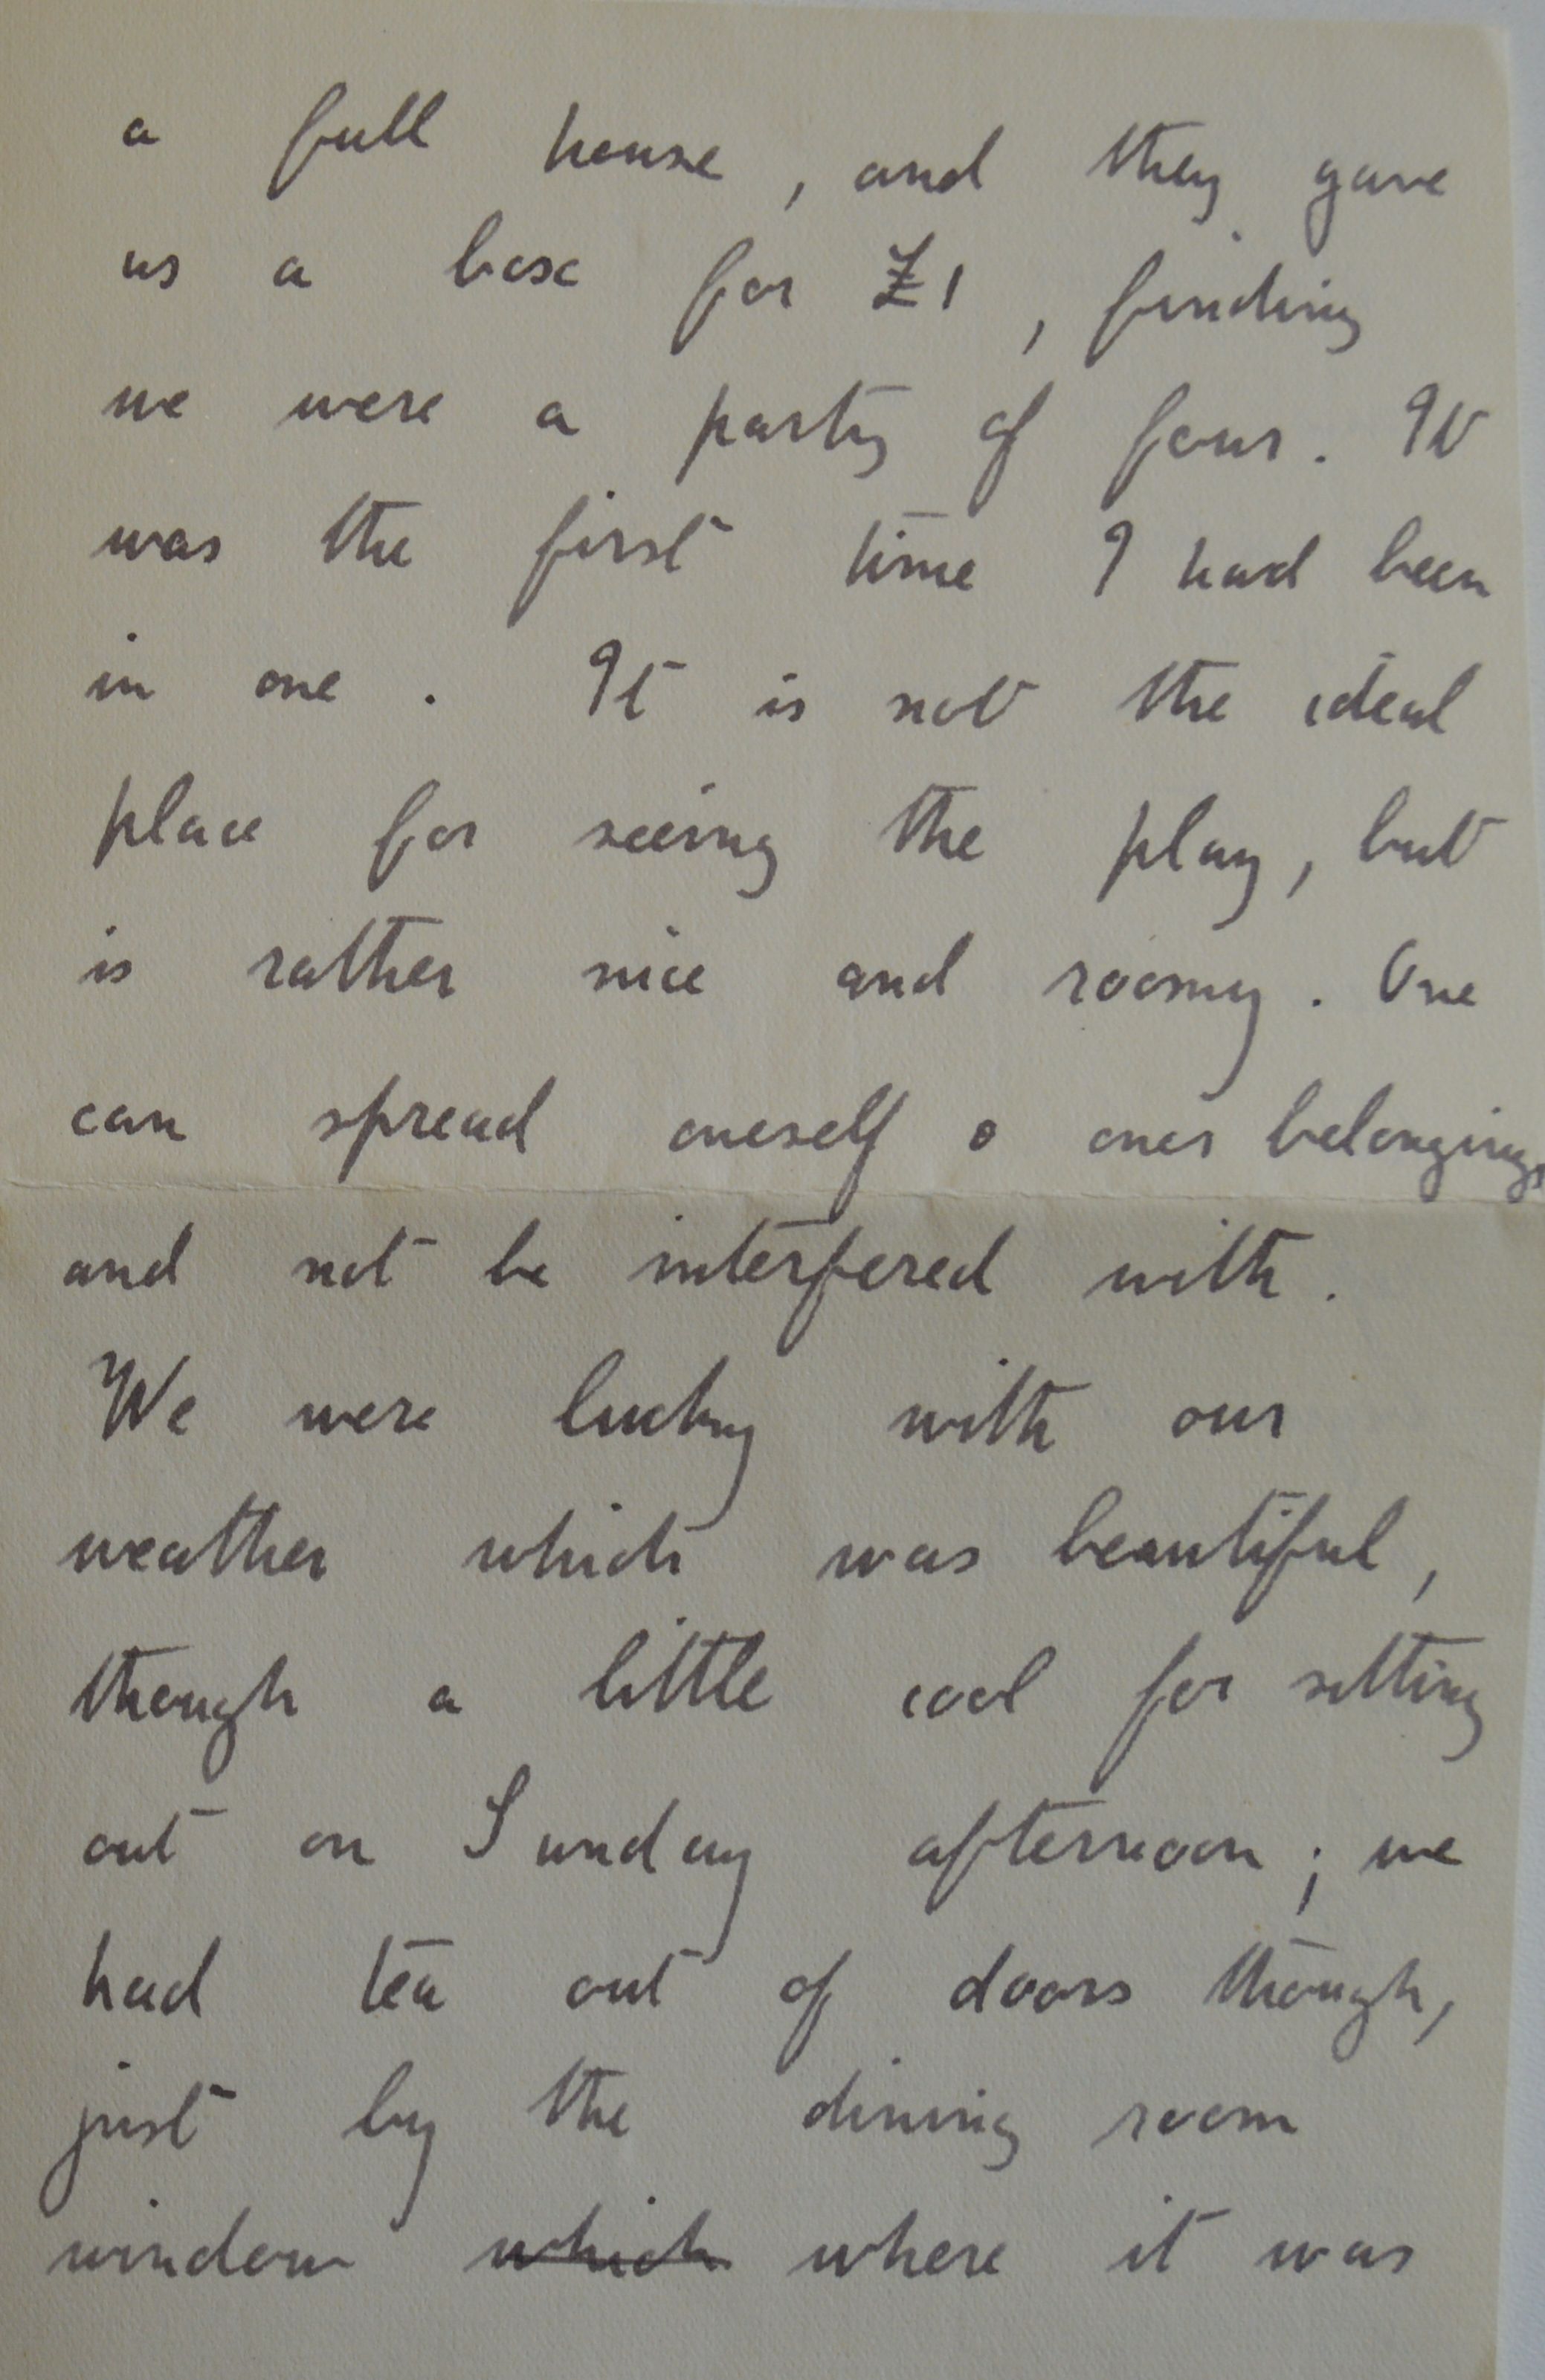 a full house, and they gave
us a box for £1, finding
we were a party of four. It
was the first time I had been
in one. It is not the ideal
place for seeing the play, but
is rather nice and roomy. One
can spread oneself & ones belongings
and not be interfered with.
We were lucky with our
weather which was beautiful,
though a little cool for sitting
out on Sunday afternoon; we
had tea out of doors though,
just by the dining room
window which where it was